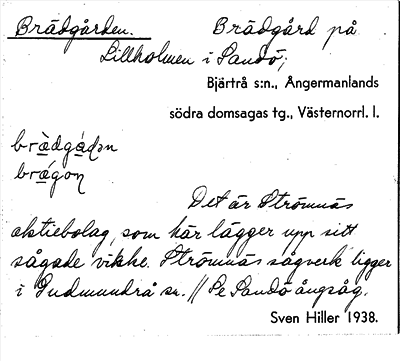 Brädgården. Brädgård på
Lillholmen i Sandö;
Bjärtrå s:n., Ångermanlands
södra domsagas tg., Västernorrl. l.
brä̀dgá̱ḍən
brá̱goɳ
Det är Strömnäs
aktiebolag, som här lägger upp sitt
sågade virke. Strömnäs sågverk ligger
i Gudmundrå sn. // Se Sandö ångsåg.
Sven Hiller 1938.